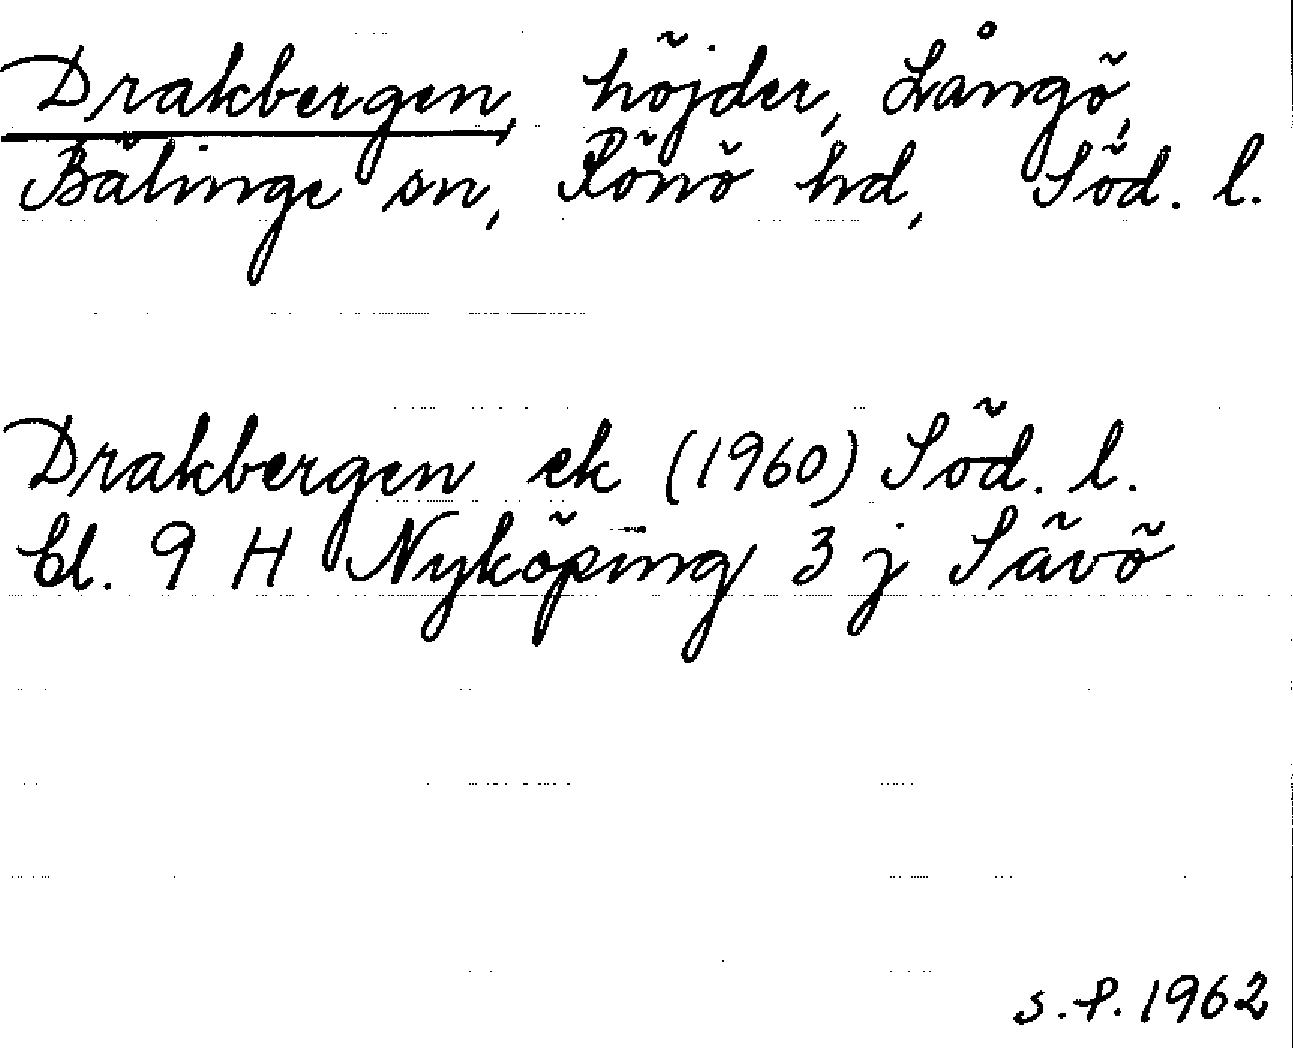 Drakbergen, höjder, Långö,
Bälinge sn, Rönö hd, Söd. l.
Drakbergen ek (1960) Söd. l.
bl. 9 H Nyköping 3 j Sävö
S.P. 1962